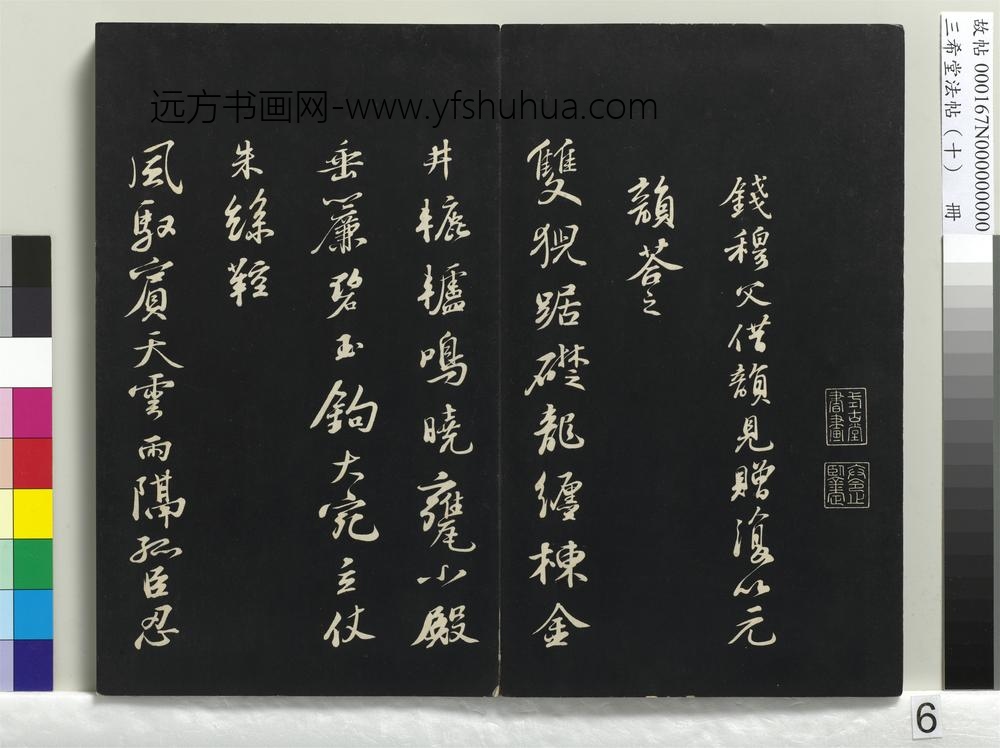 远方书画网-www.yfshuhua.com
錢穆父借韻見贈復以元
韻荅之
雙猊踞礎龍纏棟金
井轆轤鳴曉甕小殿
垂簾碧玉鉤大宛立仗
朱絲鞚
風馭賓天雲雨隔孤臣忍
故帖 000167N000000000
三希堂法帖（十） 冊
6